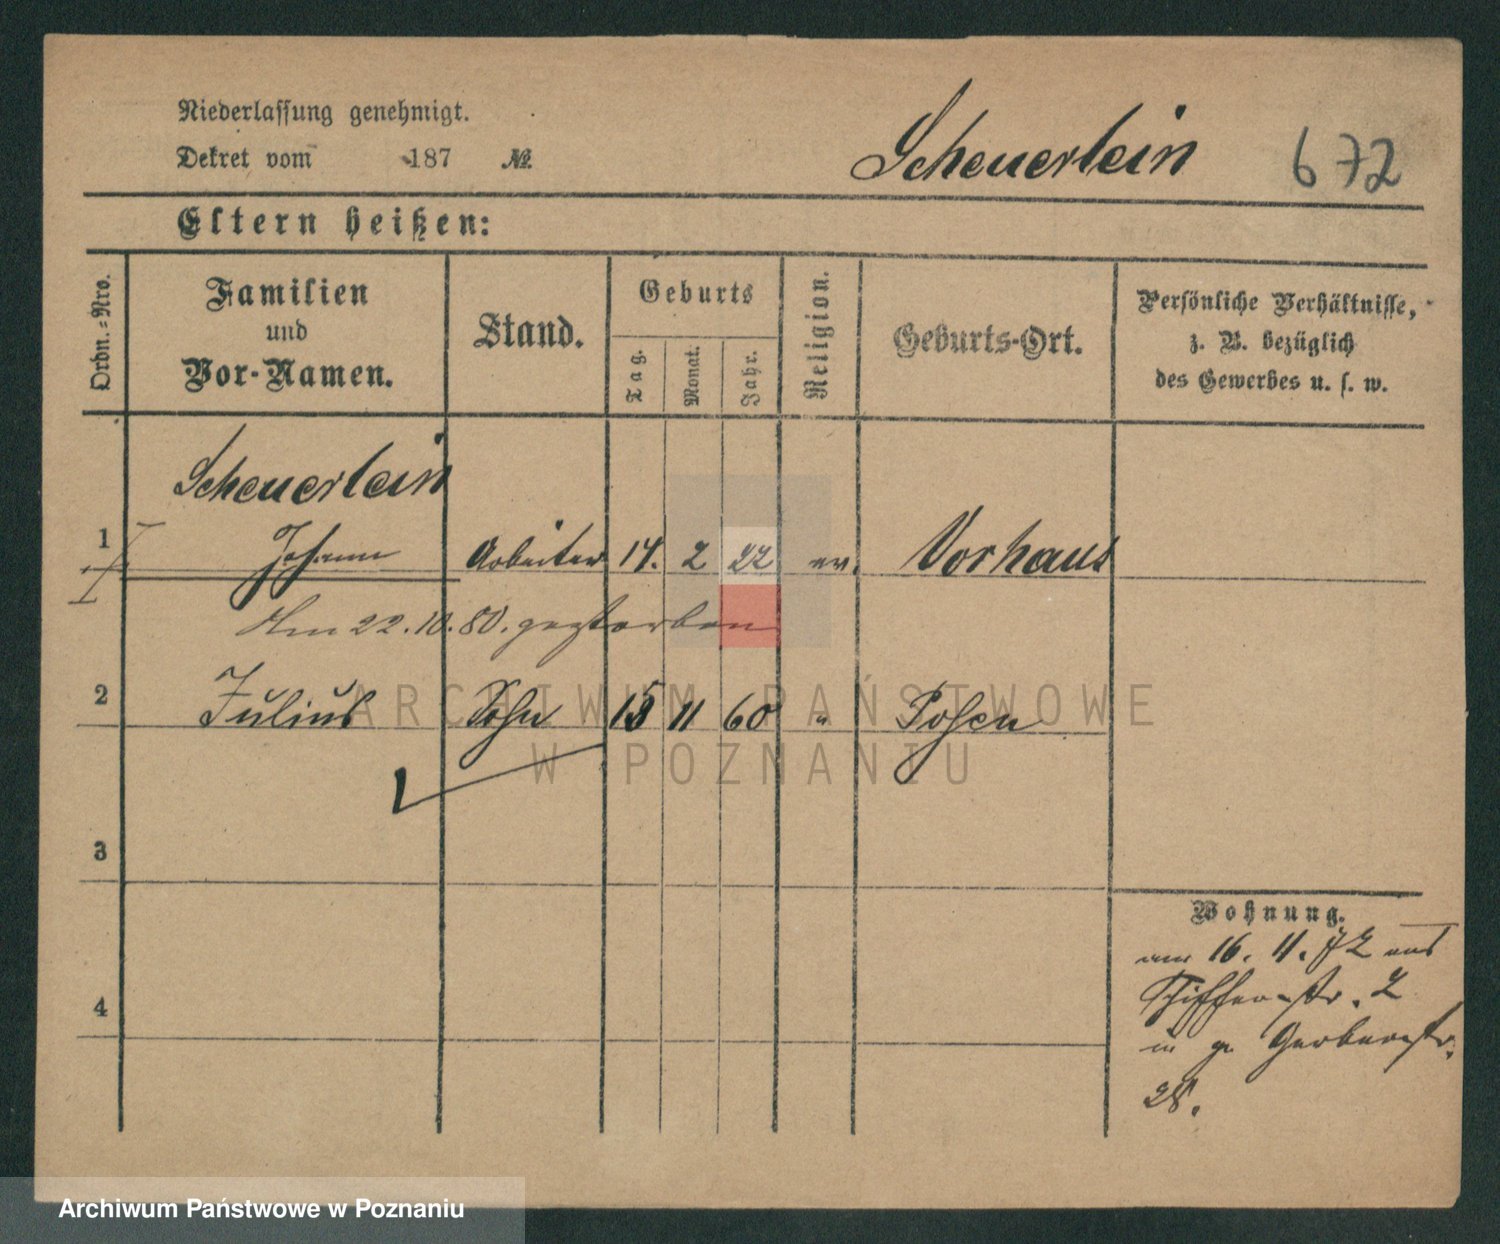 Niederlassung genehmigt.
Dekret vom 187 №
Scheuerlein 672
Eltern heißen:
Ordn.-Nro.
Familien
und
Vor-Namen.
Stand.
Geburts
Tag.
Monat.
Jahr.
Religion.
Geburts-Ort.
Persönliche Verhältnisse,
z. B. bezüglich
des Gewerbes u. s. w.
Scheuerlein
1 Johann Arbeiter 14. 2 22 ev. Vorhaus
Am 22.10.80. gestorben
2 Julius Sohn 15 11 60 " Posen
3
4
Wohnung.
am 16. 11. 72 aus
Schifferstr. 2
Gerberstr.
28.
ARCHIWUM PAŃSTWOWE
W POZNANIU
Archiwum Państwowe w Poznaniu